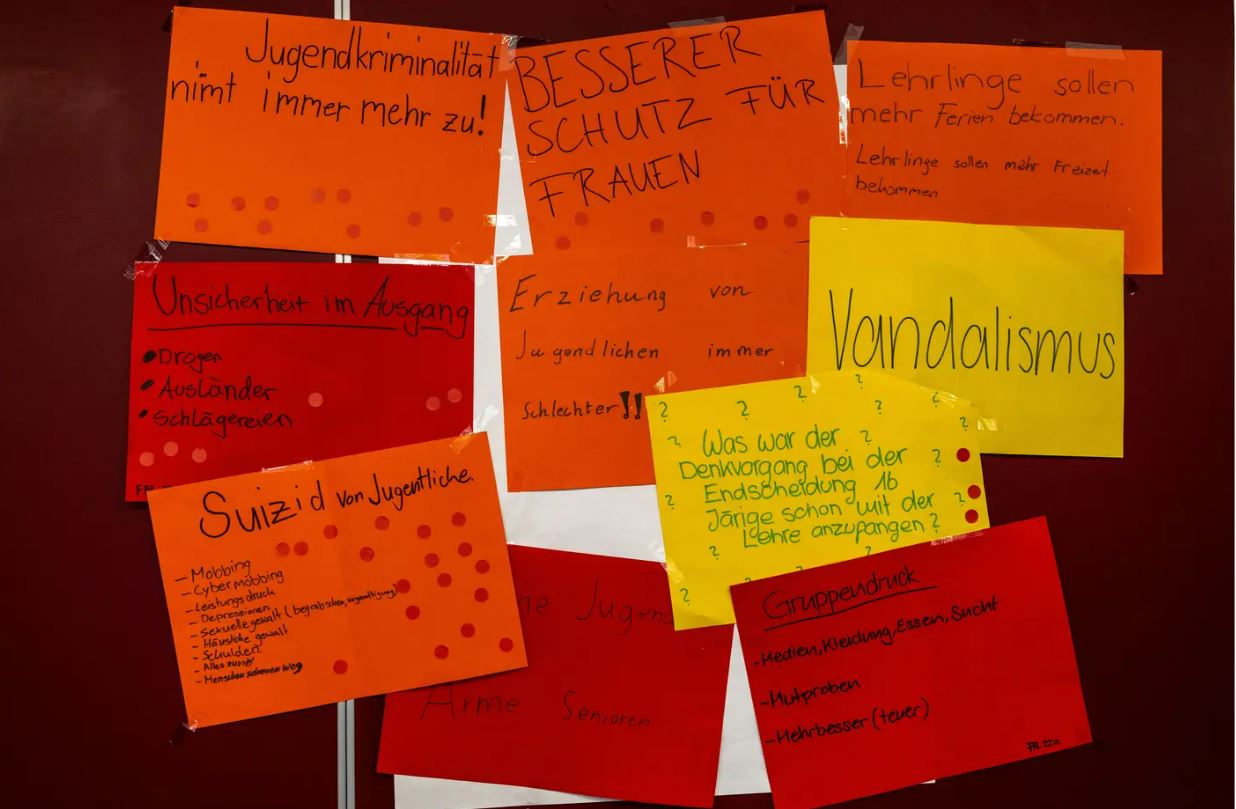 Jugendkriminalität
nimt immer mehr zu!
BESSERER
SCHUTZ FÜR
FRAUEN
Lehrlinge sollen
mehr Ferien bekommen.
Lehrlinge sollen mehr Freizeit
bekommen
Unsicherheit im Ausgang
• Drogen
• Ausländer
• Schlägereien
Erziehung von
Jugendlichen immer
schlechter!!
Vandalismus
? ? ? ? ? ? ?
? Was war der ?
Denkvorgang bei der ?
? Endscheidung 16
Järige schon mit der ?
? Lehre anzufangen? ?
? ?
Suizid von Jugentliche.
- Mobbing
- Cybermobbing
- Leistungsdruck
- Depressionen
- Sexuelle gewalt (begrabschen, vergewaltigung)
- Häusliche gewalt
- Schulden
- Alles zu viel
- Menschen schauen weg
Jugend
Arme Senioren
Gruppendruck
- Medien, Kleidung, Essen, Sucht
- Mutproben
- Mehrbesser (teuer)